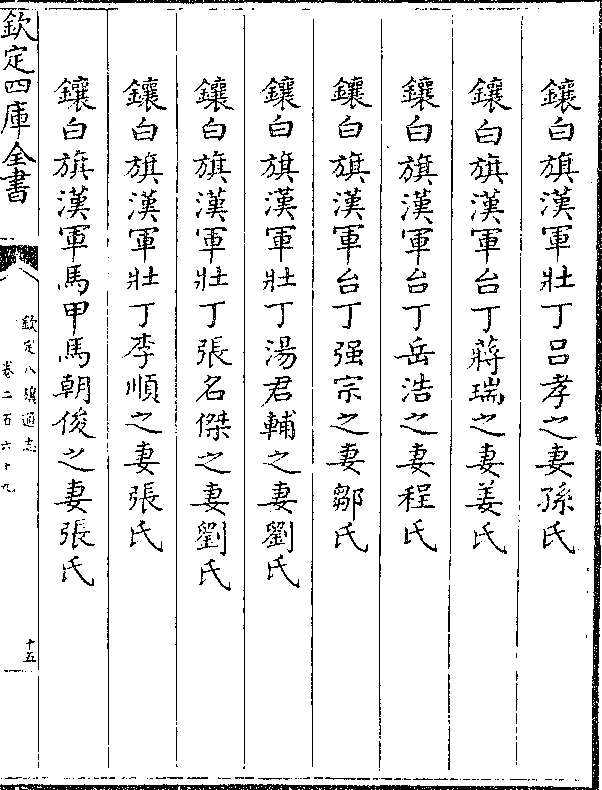 鑲白旗漢軍壯丁吕孝之妻孫氏
鑲白旗漢軍台丁蔣瑞之妻姜氏
鑲白旗漢軍台丁岳浩之妻程氏
鑲白旗漢軍台丁强宗之妻鄒氏
鑲白旗漢軍壯丁湯君輔之妻劉氏
鑲白旗漢軍壯丁張名傑之妻劉氏
鑲白旗漢軍壯丁李順之妻張氏
鑲白旗漢軍馬甲馬朝俊之妻張氏
欽定四庫全書
欽定八旗通志
卷二百六十九
十五